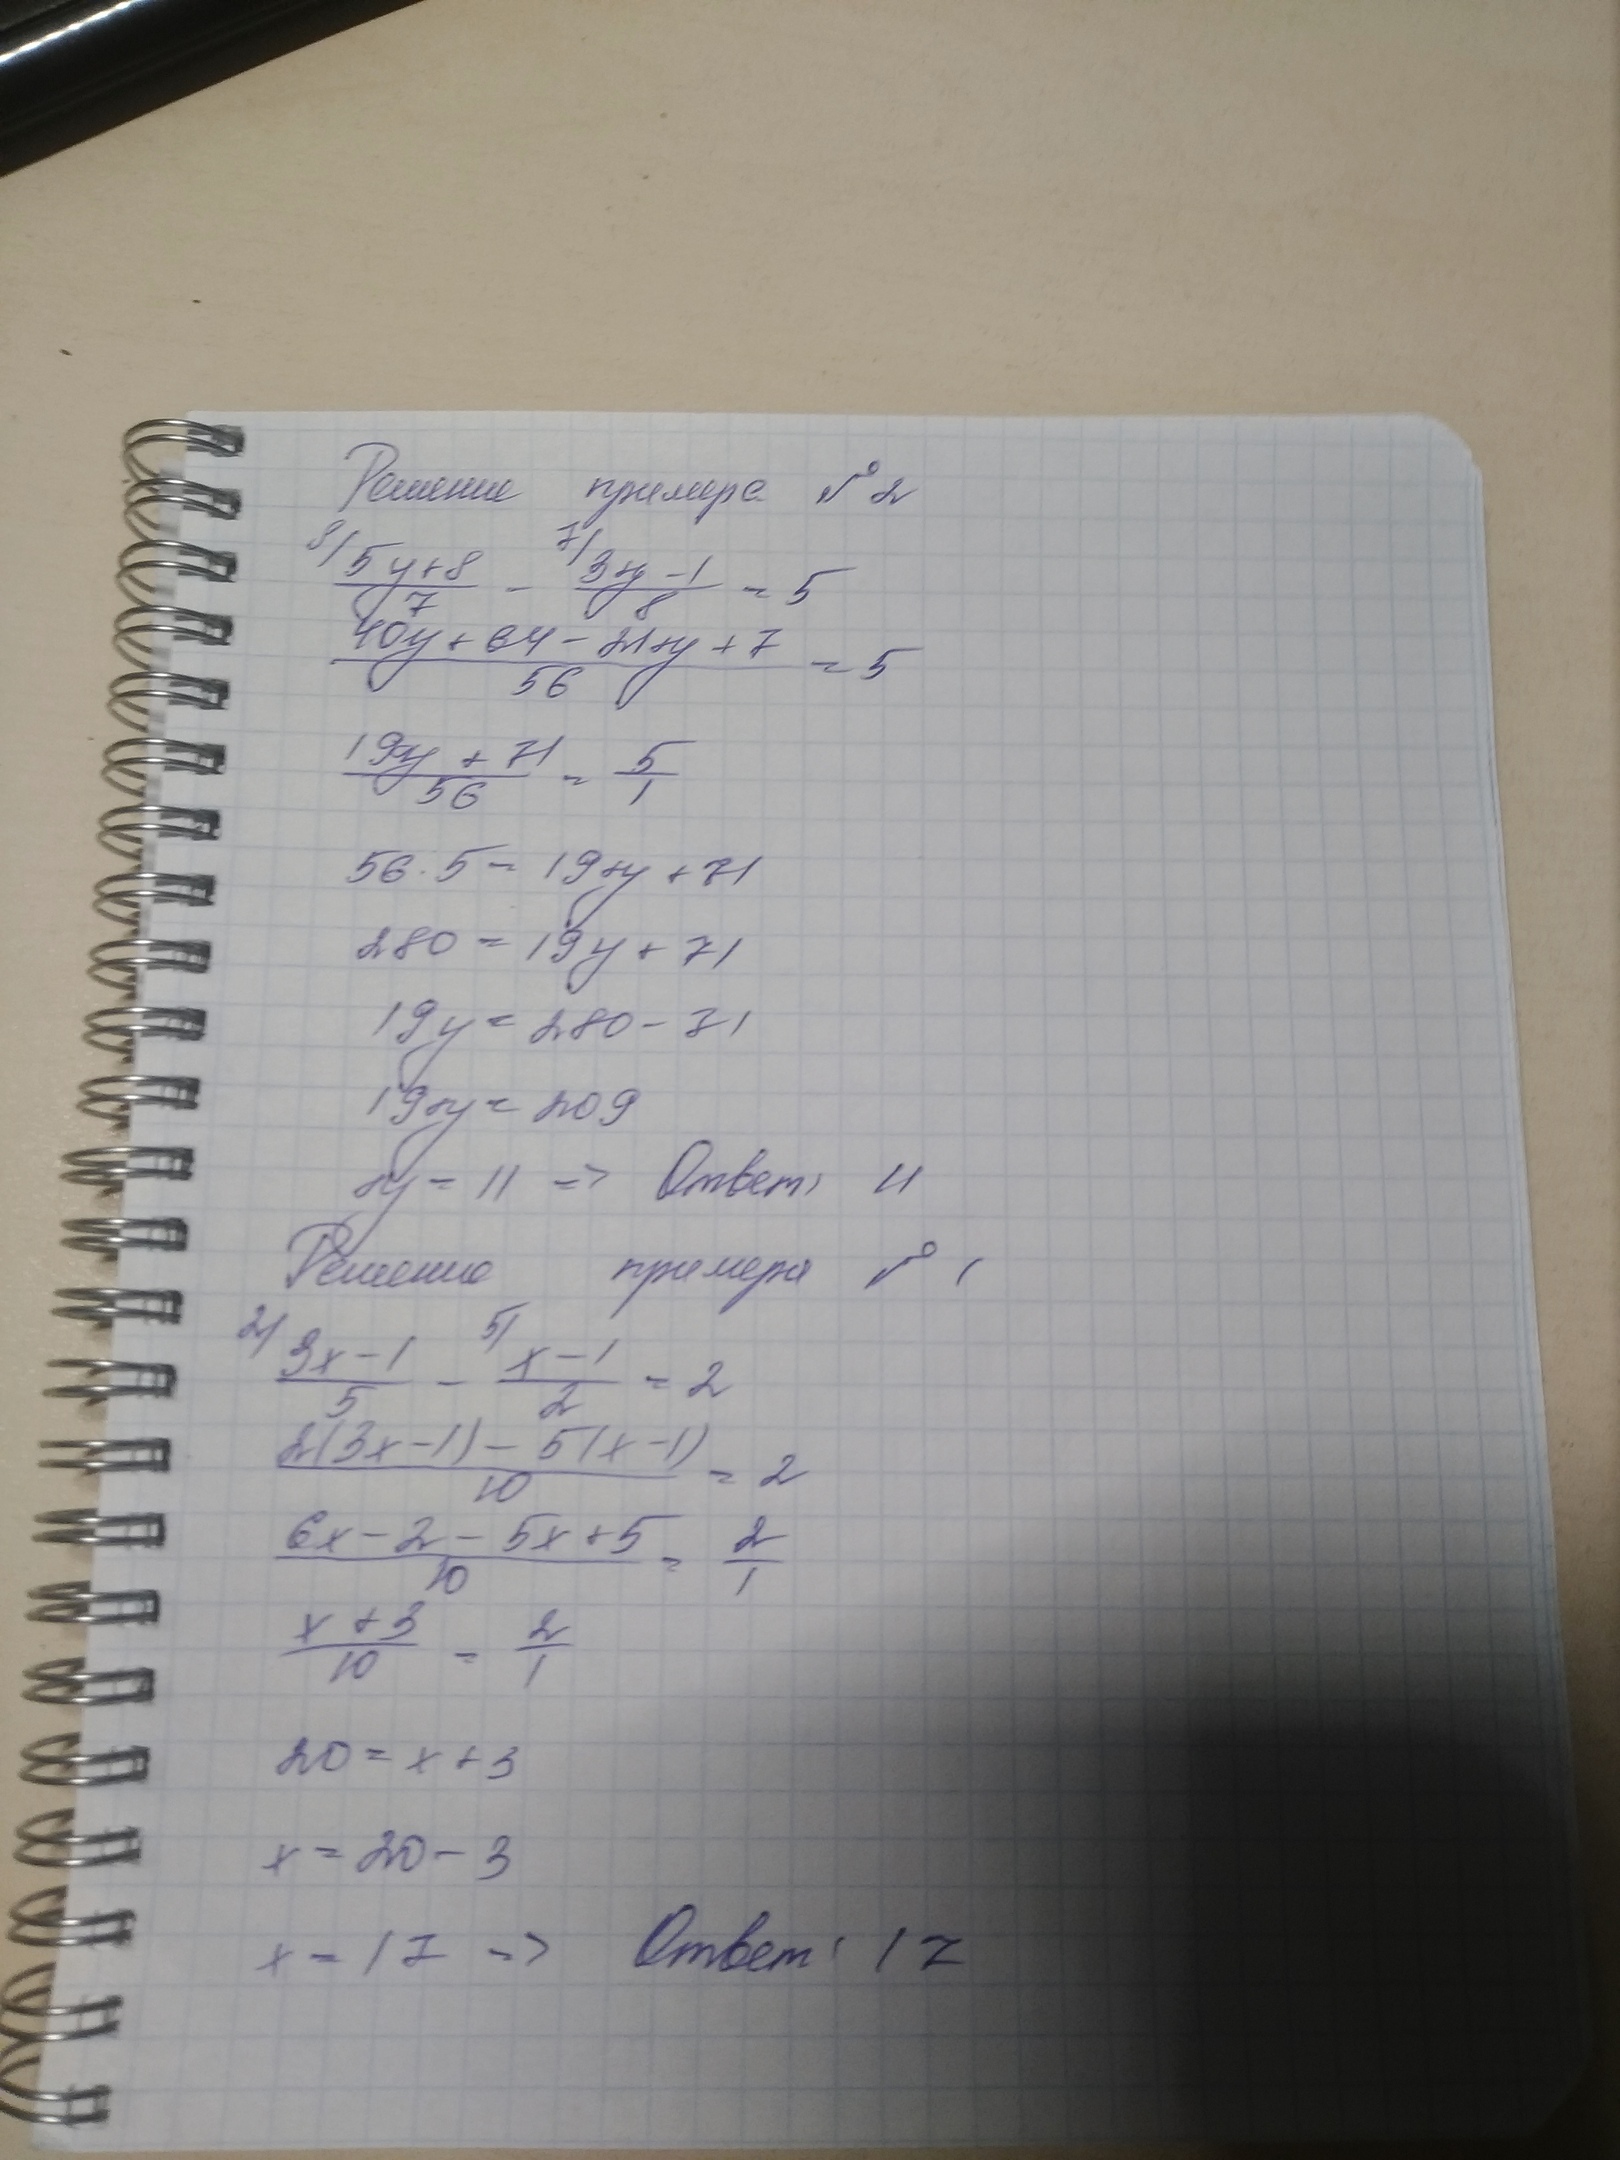 Решение примера № 2
8/ (5y+8)/7 - 7/ (3y-1)/8 = 5
(40y+64-21y+7)/56 = 5
(19y+71)/56 = 5/1
56·5=19y+71
280=19y+71
19y=280-71
19y=209
y=11 => Ответ: 11
Решение примера № 1
2/ (3x-1)/5 - 5/ (x-1)/2 = 2
(2(3x-1)-5(x-1))/10 = 2
(6x-2-5x+5)/10 = 2/1
(x+3)/10 = 2/1
20=x+3
x=20-3
x=17 => Ответ: 17